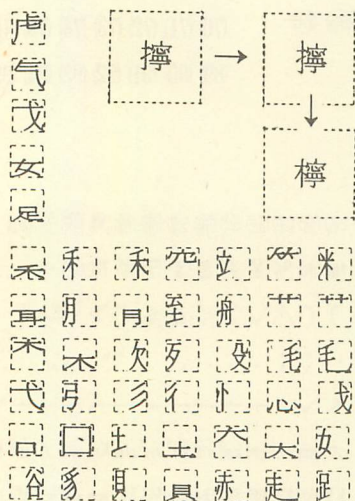 虍 擰 → 擰
气
戈 ↓
女 檸
足
禾 禾 禾 穴 立 ⺮ 米
耳 月 月 至 舟 艹 艹
木 木 欠 歹 殳 毛 毛
弋 弓 彡 彳 忄 心 戈
口 囗 土 土 大 大 女
谷 豸 貝 貝 赤 走 𧾷